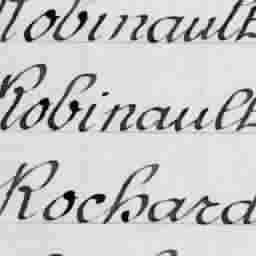 Robinault
Robinault
Rochard